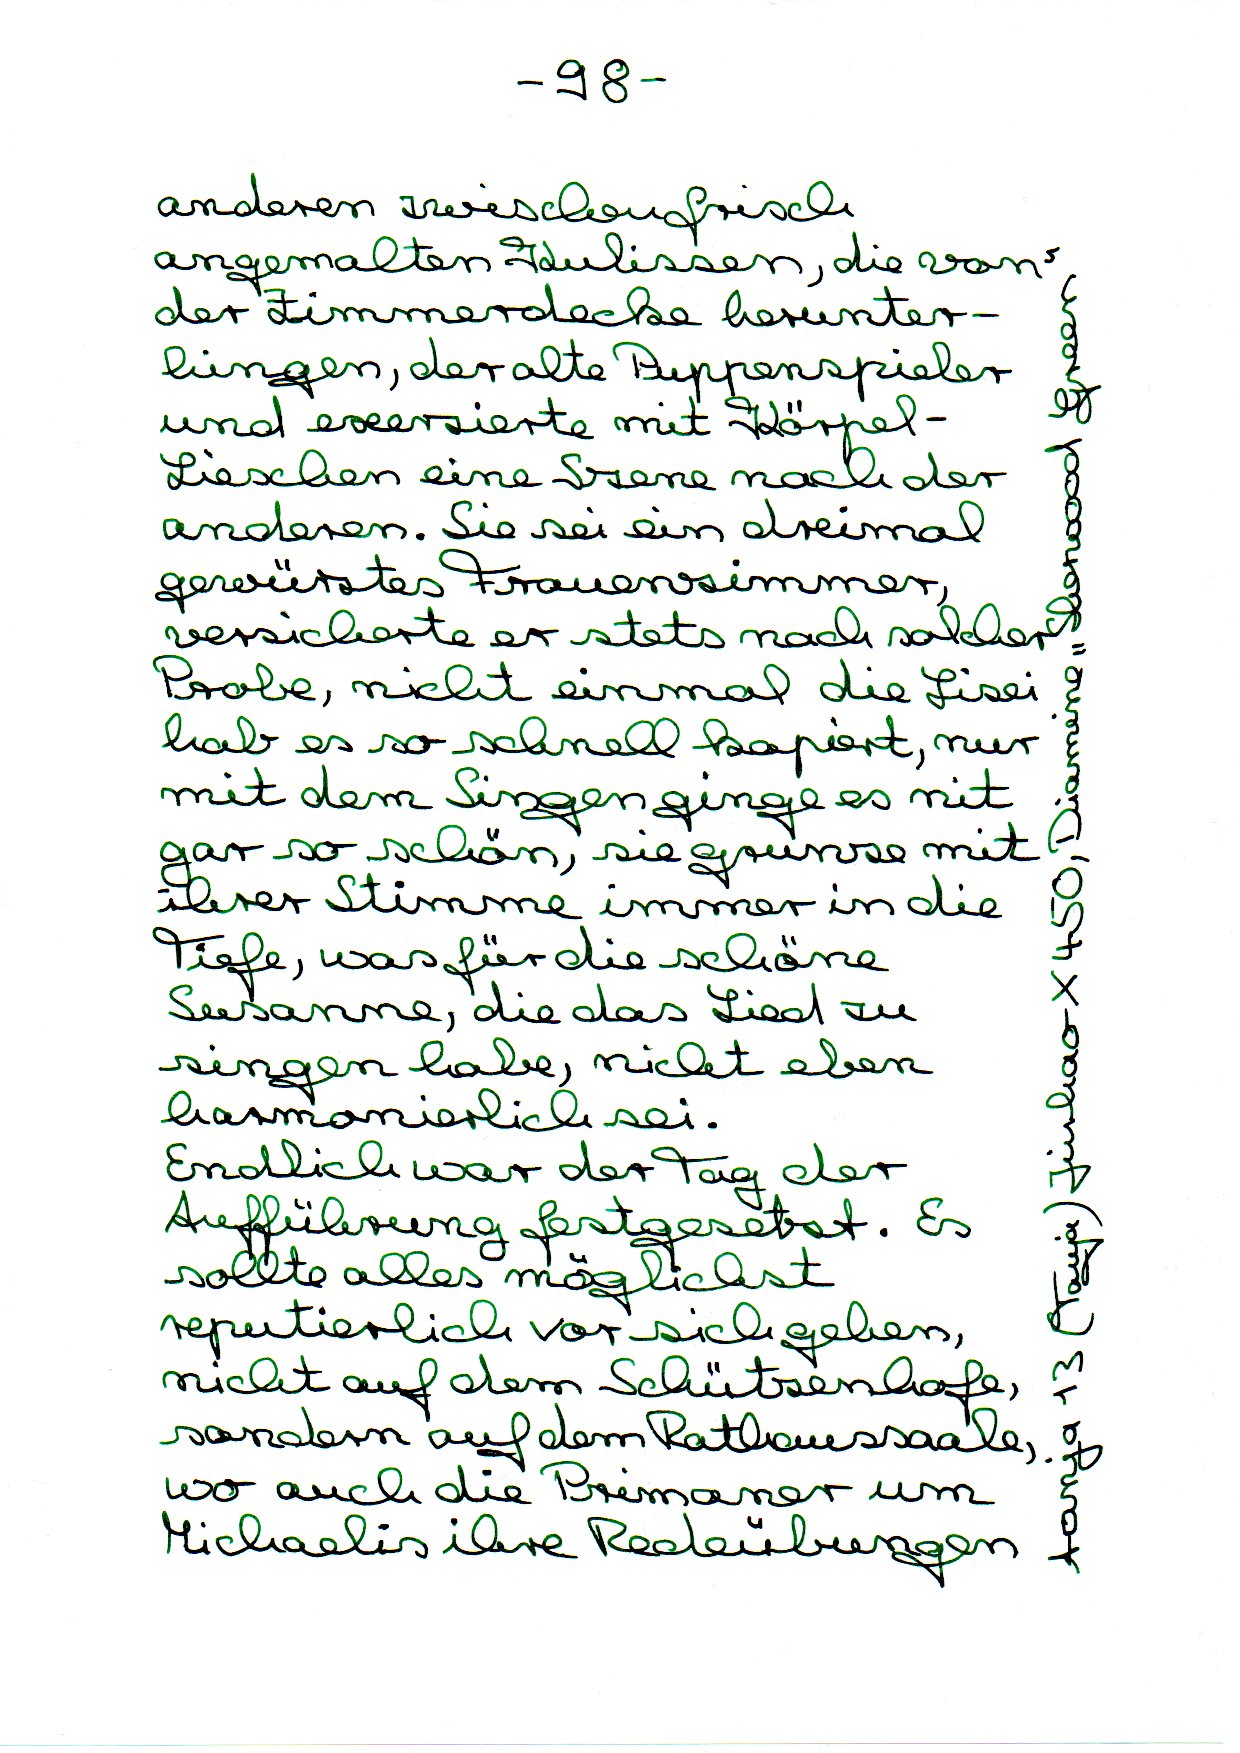 -98-
anderen zwischen frisch
angemalten Kulissen, die von
der Zimmerdecke herunter-
hingen, der alte Puppenspieler
und exerzierte mit Kröpel-
Lieschen eine Szene nach der
anderen. Sie sei ein dreimal
gewürztes Frauenzimmer,
versicherte er stets nach solcher
Probe, nicht einmal die Lisei
hab es so schnell kapiert, nur
mit dem Singen ginge es nit
gar so schön, sie grunze mit
ihrer Stimme immer in die
Tiefe, was für die schöne
Susanne, die das Lied zu
singen habe, nicht eben
harmonierlich sei.
Endlich war der Tag der
Aufführung festgesetzt. Es
sollte alles möglichst
reputierlich vor sich gehen,
nicht auf dem Schützenhofe,
sondern auf dem Rathaussaale,
wo auch die Primaner um
Michaelis ihre Redeübungen
tanja 13 (Tanja) Jinhao X 450, Diamine "Sherwood Green"